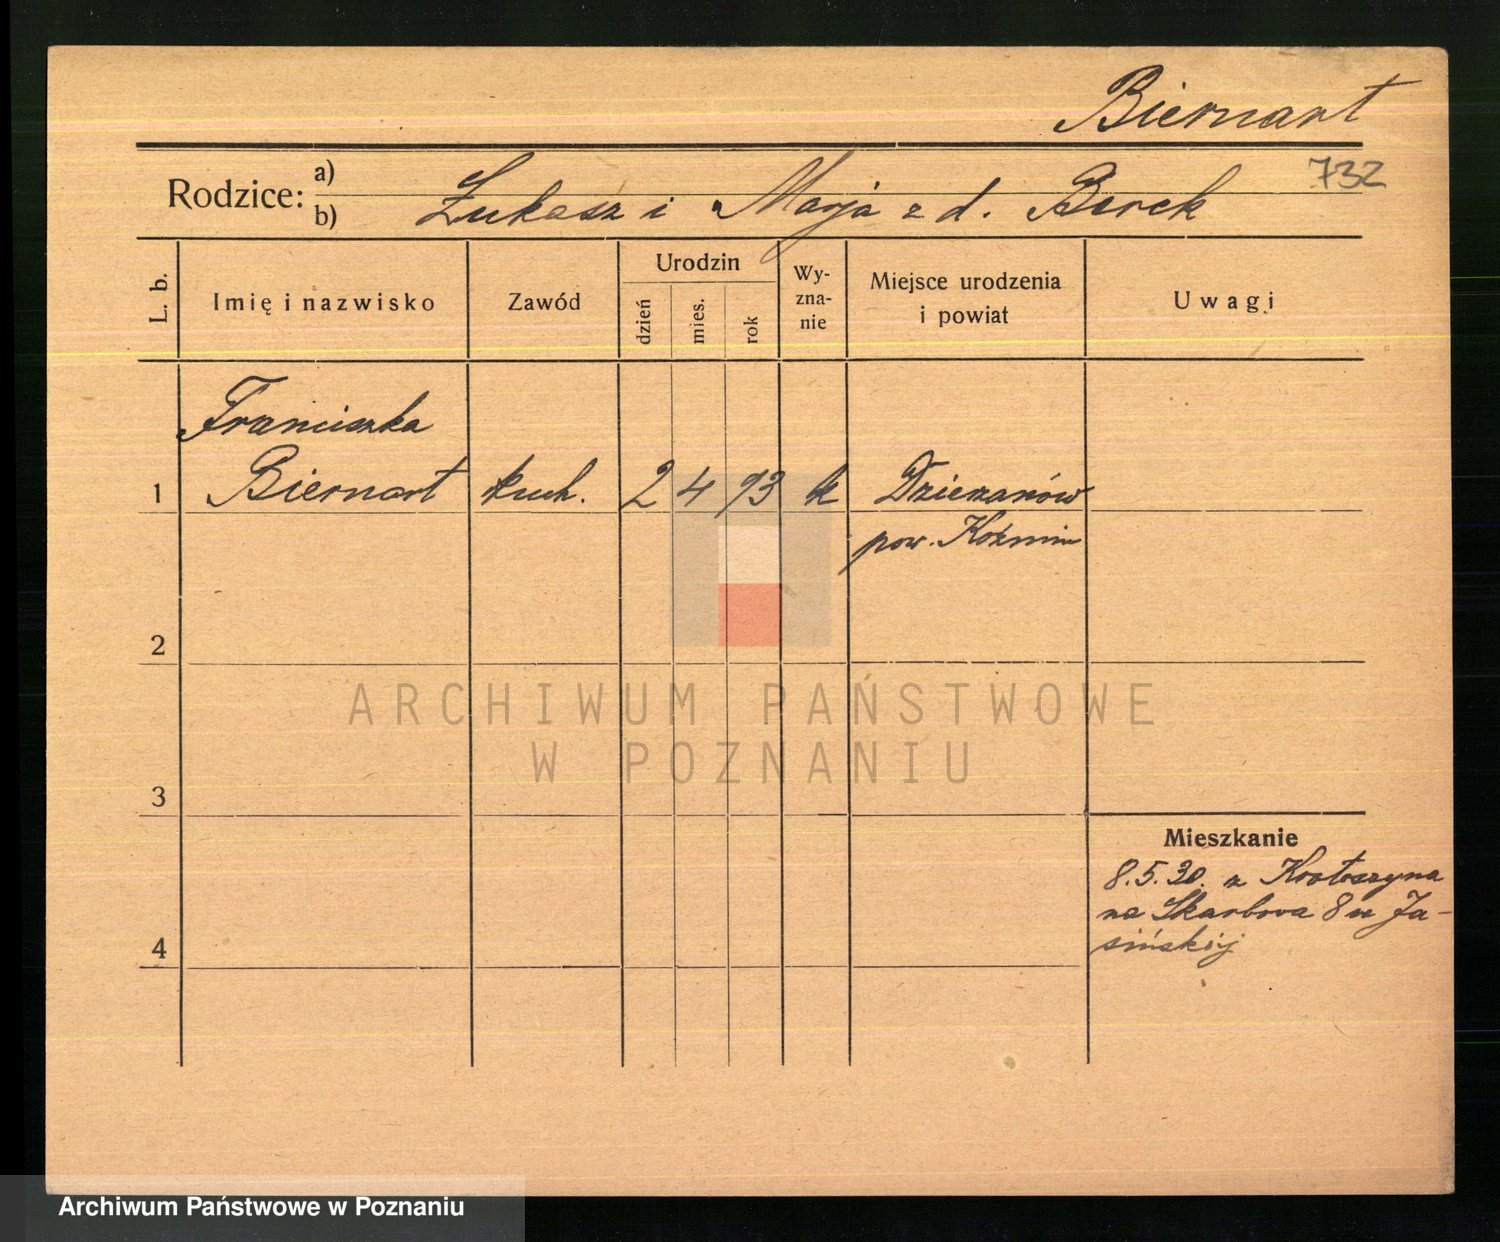 Biernart
732
Rodzice: a)
b) Łukasz i Marja z d. Berek
L. b.
Imię i nazwisko
Zawód
Urodzin
dzień
mies.
rok
Wy-
zna-
nie
Miejsce urodzenia
i powiat
Uwagi
Franciszka
1 Biernart kuch. 2 4 93 k Dzierzanów
pow. Koźmin
2
3
4
Mieszkanie
8.5.30. z Krotoszyna
na Skarbowa 8 u Ja-
sińskiej
ARCHIWUM PAŃSTWOWE
W POZNANIU
Archiwum Państwowe w Poznaniu